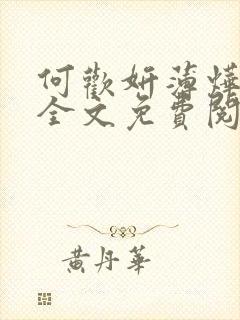 何歡妍蒲燁
全文免費閱
黃丹華